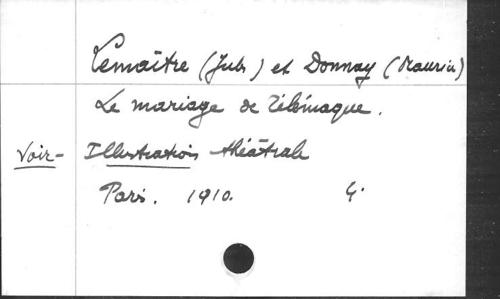 Lemaître (Jules) et Donnay (Maurice)
Le mariage de Télémaque.
Voir - Illustration théâtrale
Paris. 1910. 4.